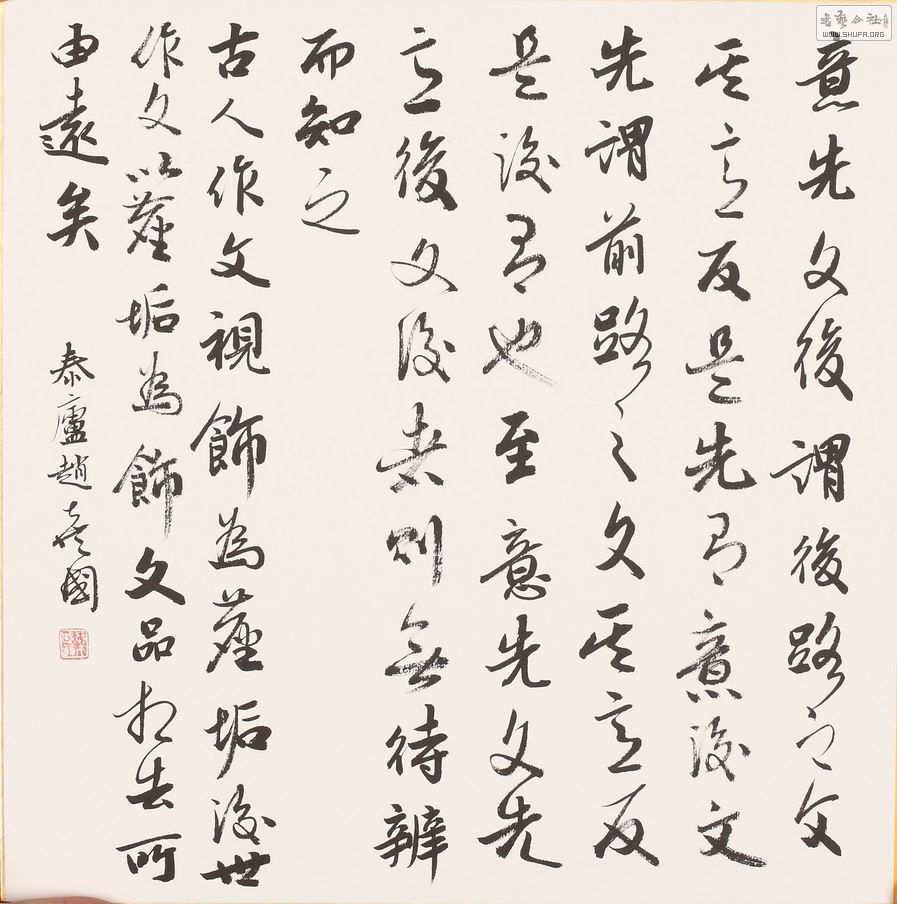 意先文後謂後路之文
其意反是先有意後文
先謂前路之文其意反
是後有也至意先文先
意後文後者則無待辨
而知之
古人作文視飾為塵垢後世
作文以塵垢為飾文品相去所
由遠矣
泰廬趙彥國
書藝公社
WWW.SHUFA.ORG